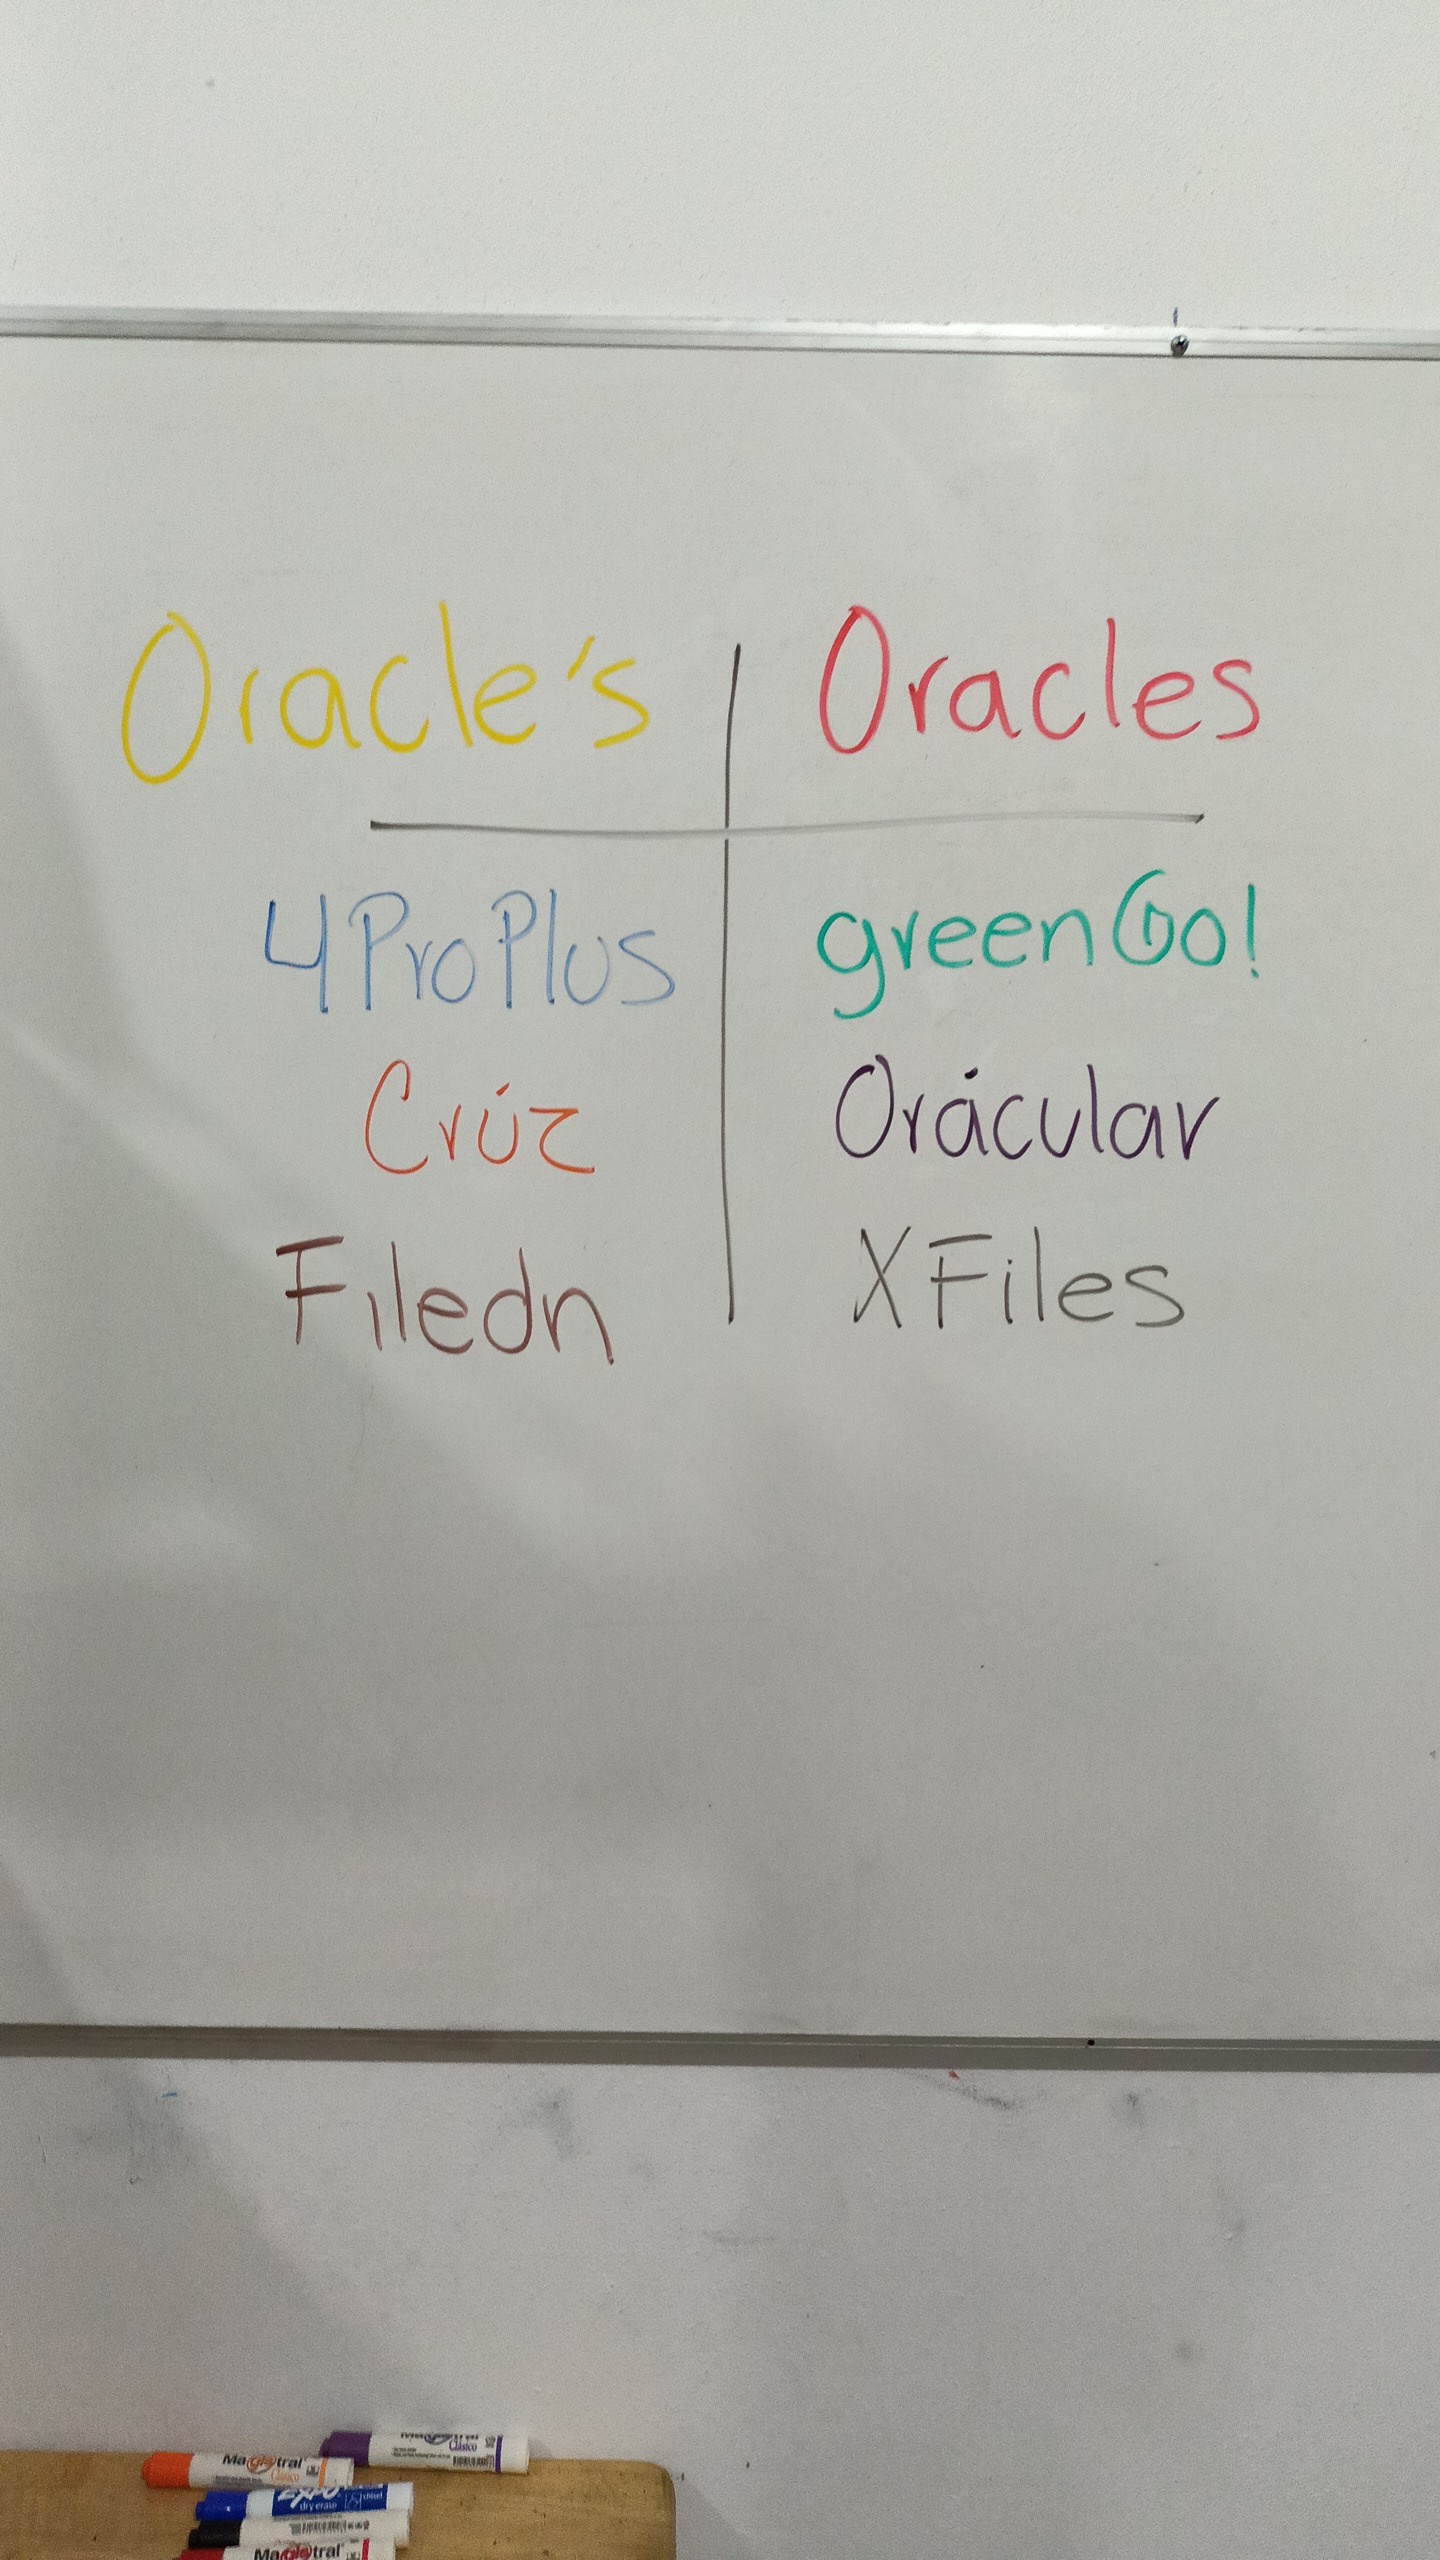 Oracle's Oracles
4ProPlus greenGo!
Crúz Orácular
Filedn XFiles
Magistral Clásico
Magistral Clásico
EXPO dry erase
Magistral